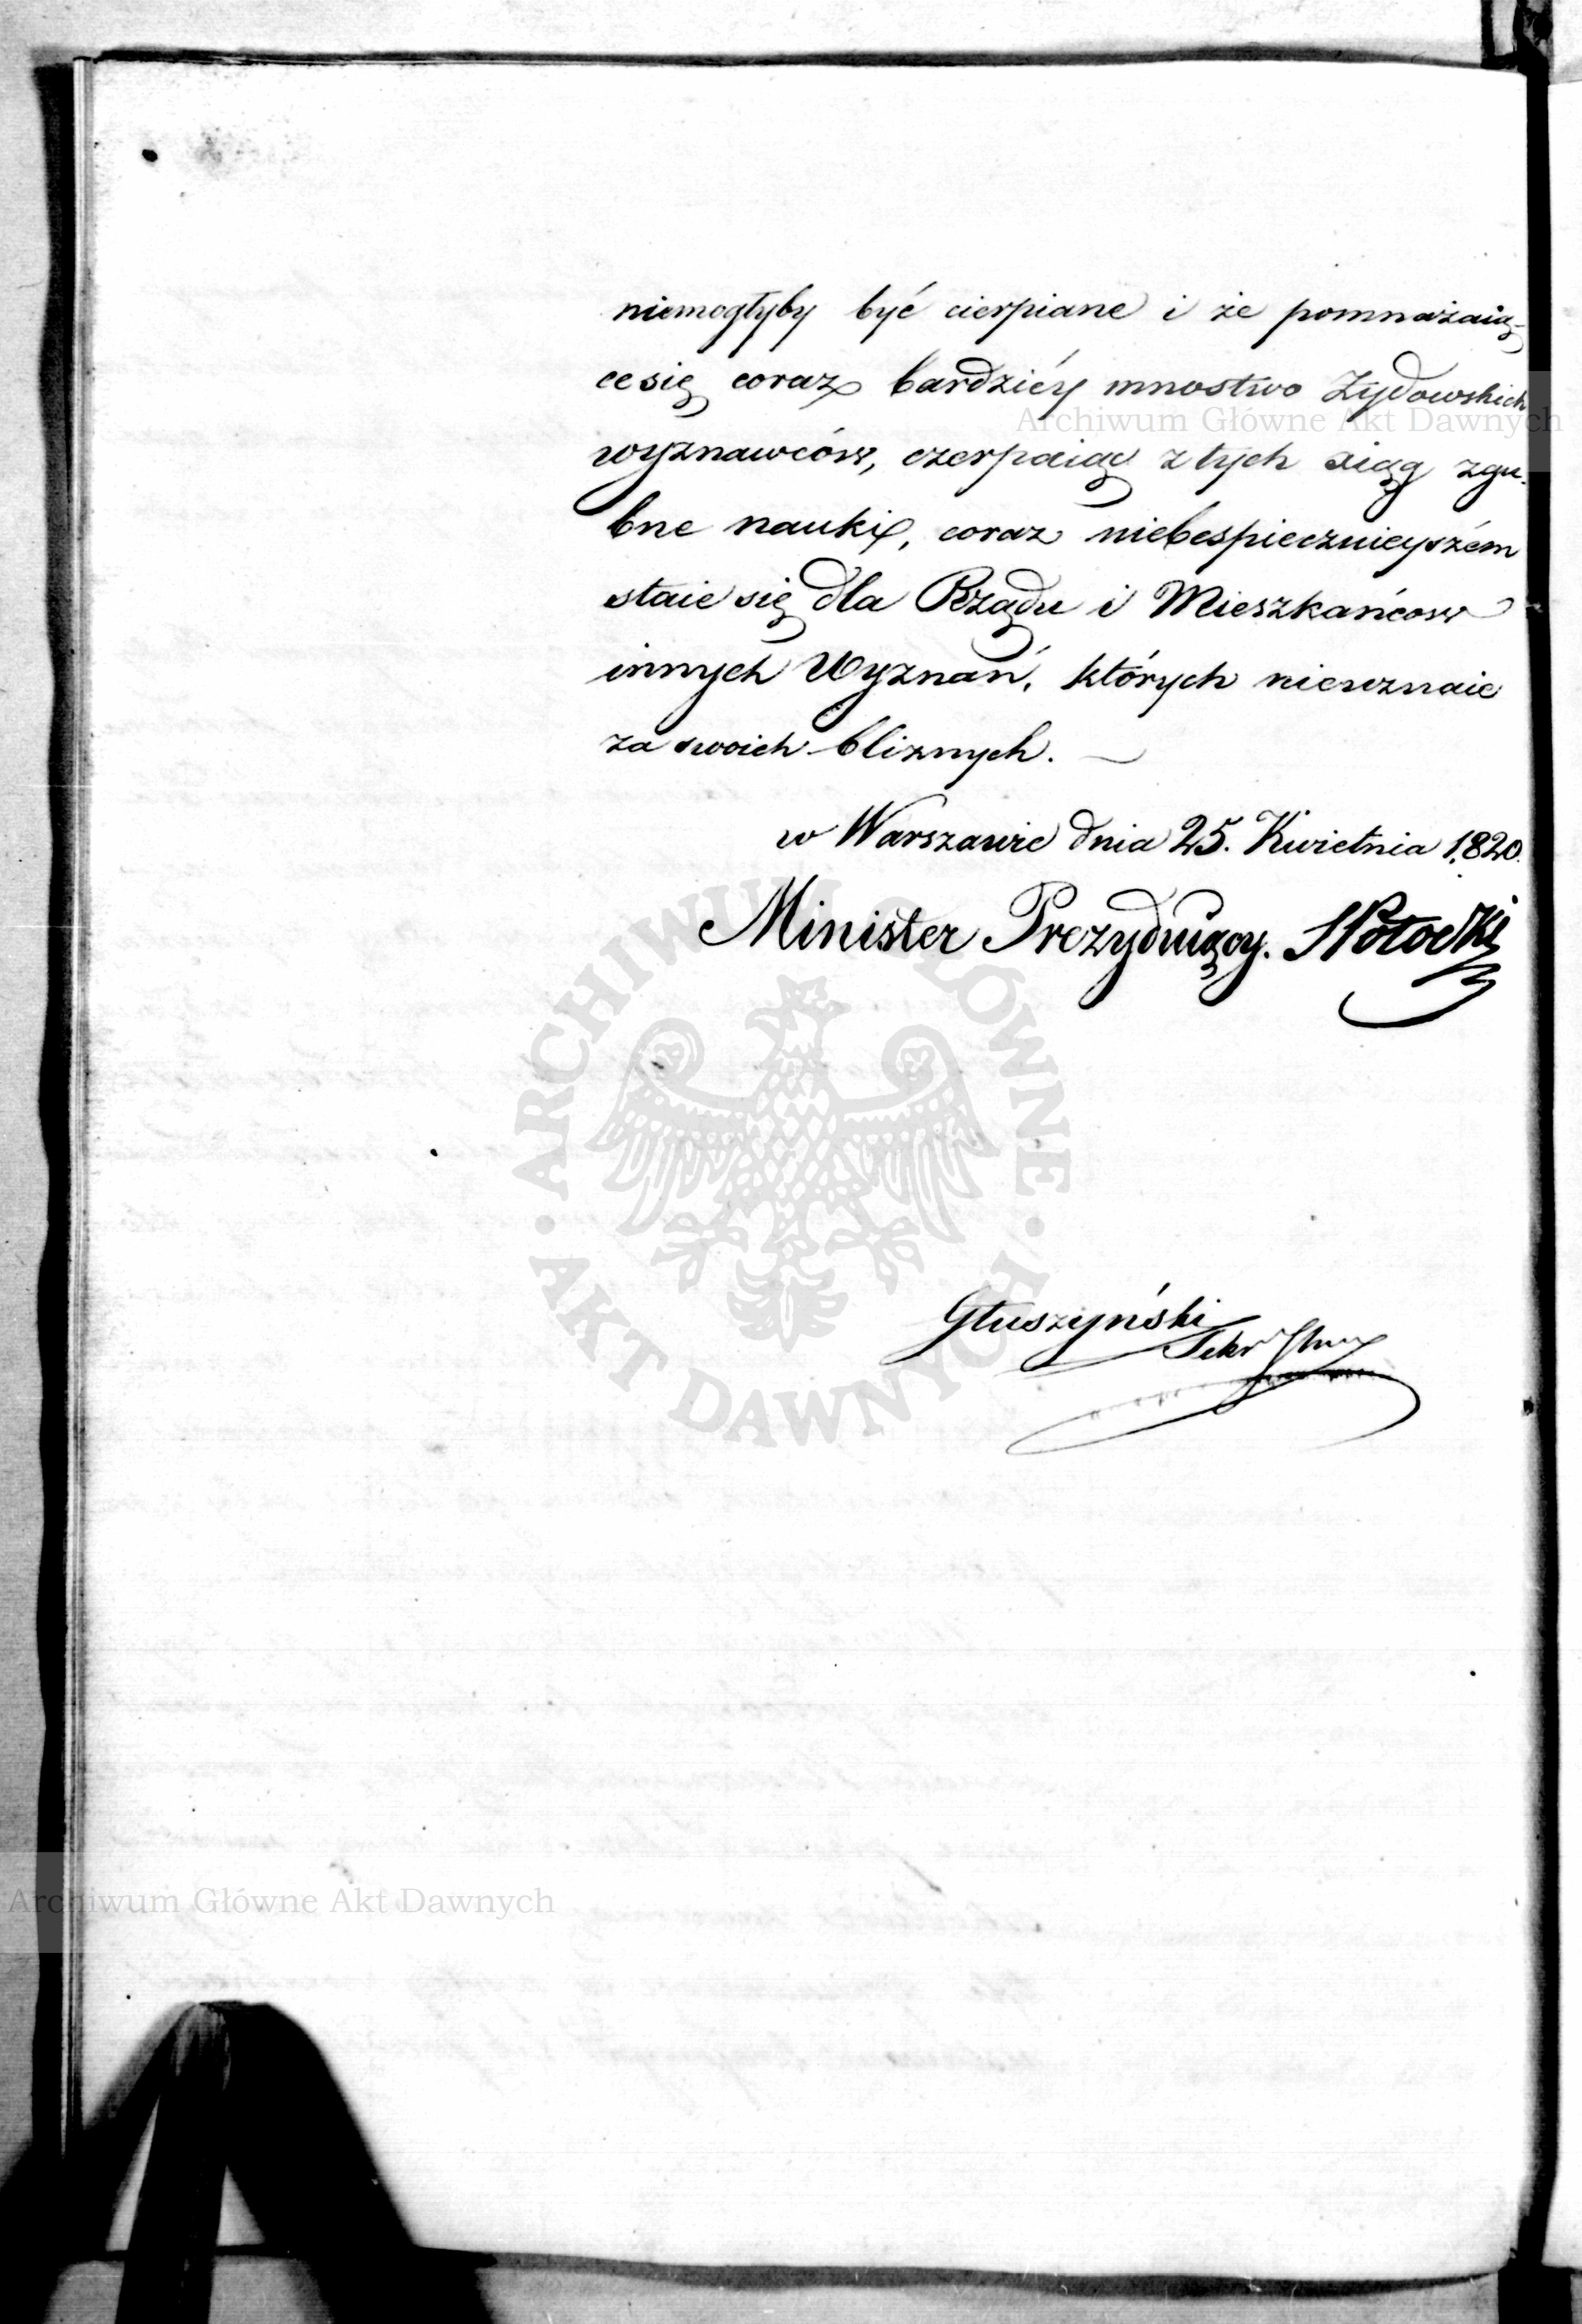 niemogłyby być cierpiane i że pomnażaią-
ce się coraz bardziéy mnostwo Żydowskich
wyznawców, czerpaiąc z tych xiąg zgu-
bne nauki, coraz niebespiecznieyszém
staie się dla Rządu i Mieszkańcow
innych Wyznań, których nieuznaie
za swoich bliznych. —
w Warszawie dnia 25. Kwietnia 1820.
Minister Prezyduiący. SPotocki
Głuszyński
Sekr
Archiwum Główne Akt Dawnych
ARCHIWUM GŁÓWNE · AKT DAWNYCH ·
Archiwum Główne Akt Dawnych